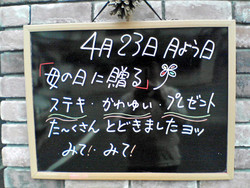 4月23日月よう日
「母の日に贈る」
ステキ・かわゆい・プレゼント
た〜くさんとどきましたヨッ
みて!みて!